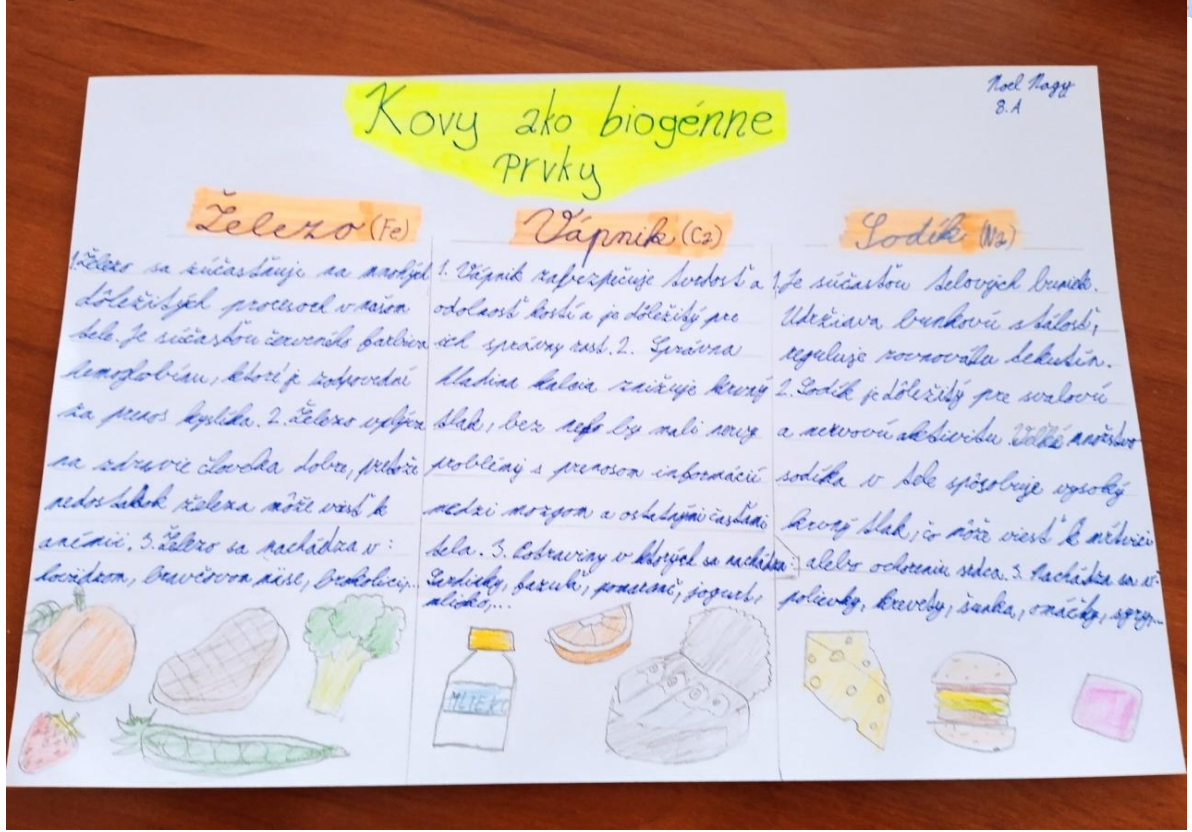 Noel Nagy
8.A
Kovy ako biogénne
prvky
Železo (Fe)
1. Železo sa zúčastňuje na mnohých
dôležitých procesoch v našom
tele. Je súčasťou červeného farbiva
hemoglobínu, ktoré je zodpovedné
za prenos kyslíka. 2. Železo vplýva
na zdravie človeka dobre, pretože
nedostatok železa môže viesť k
anémii. 3. Železo sa nachádza v:
hovädzom, bravčovom mäse, brokolici,...
Vápnik (Ca)
1. Vápnik zabezpečuje tvrdosť a
odolnosť kostí a je dôležitý pre
ich správny rast. 2. Správna
hladina kalcia znižuje krvný
tlak, bez neho by mali nervy
problémy s prenosom informácií
medzi mozgom a ostatnými časťami
tela. 3. Potraviny v ktorých sa nachádza:
Sardinky, fazuľa, pomaranč, jogurt,
mlieko,...
Sodík (Na)
1. Je súčasťou telových buniek.
Udržiava bunkovú stálosť,
reguluje rovnováhu tekutín.
2. Sodík je dôležitý pre svalovú
a nervovú aktivitu Veľké množstvo
sodíka v tele spôsobuje vysoký
krvný tlak, čo môže viesť k mŕtvici
alebo ochoreniu srdca. 3. Nachádza sa v:
polievky, krevety, šunka, omáčky, syry,...
MLIEKO